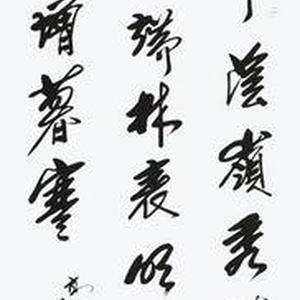 陰嶺秀
端林表明
增暮寒